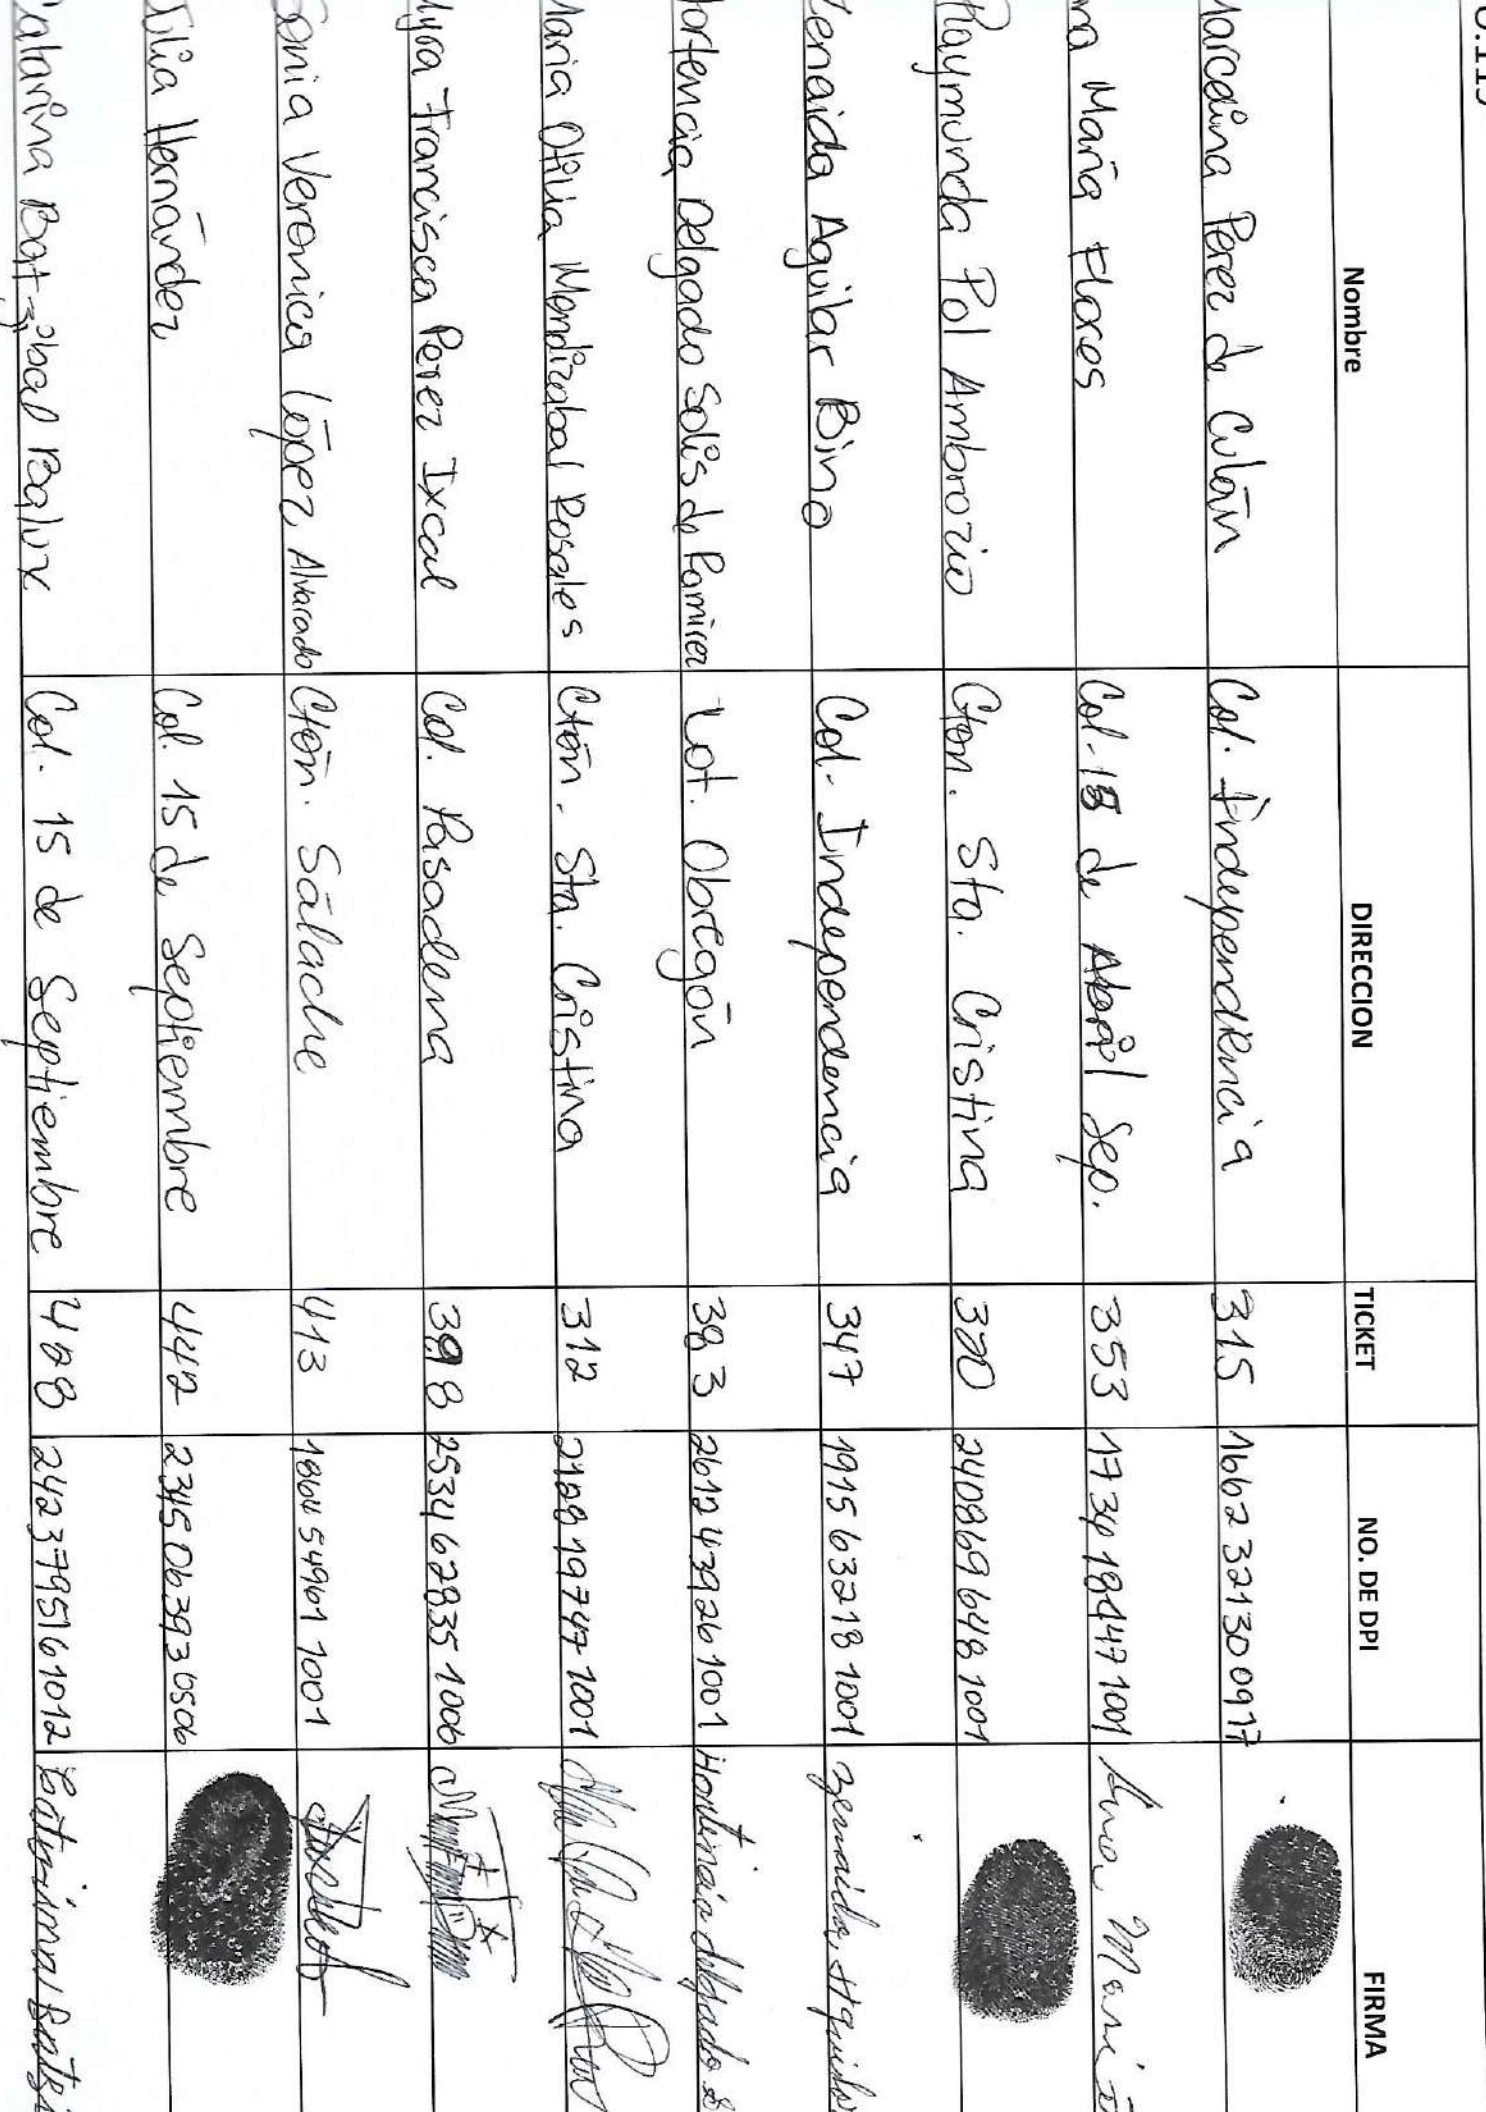 Nombre DIRECCION TICKET NO. DE DPI FIRMA
Marcelina Perez de Culán Col. Independencia 315 1662 32130 0917
na María Flores Col. 18 de Abril Sep. 353 1734 18447 1001 Ana Maria
Raymunda Pol Ambrozio Cton. Sta. Cristina 320 2408 69648 1001
Zenaida Aguilar Bino Col. Independencia 347 1915 63218 1001 Zenaida Aguilar
Hortencia Delgado Solís de Ramirez Lot. Obregón 383 2612 43926 1001 Hortencia delgado S
Maria Otilia Mendizabal Rosales Ctón. Sta. Cristina 312 2128 19747 1001
Myra Francisca Perez Ixcal Col. Pasadena 398 2534 62835 1006
Sonia Veronica López Alvarado Ctón. Sálache 413 1864 54961 1001
Julia Hernández Col. 15 de Septiembre 442 2345 06393 0506
Catarina Batzibal Balux Col. 15 de Septiembre 428 2423 79516 1012